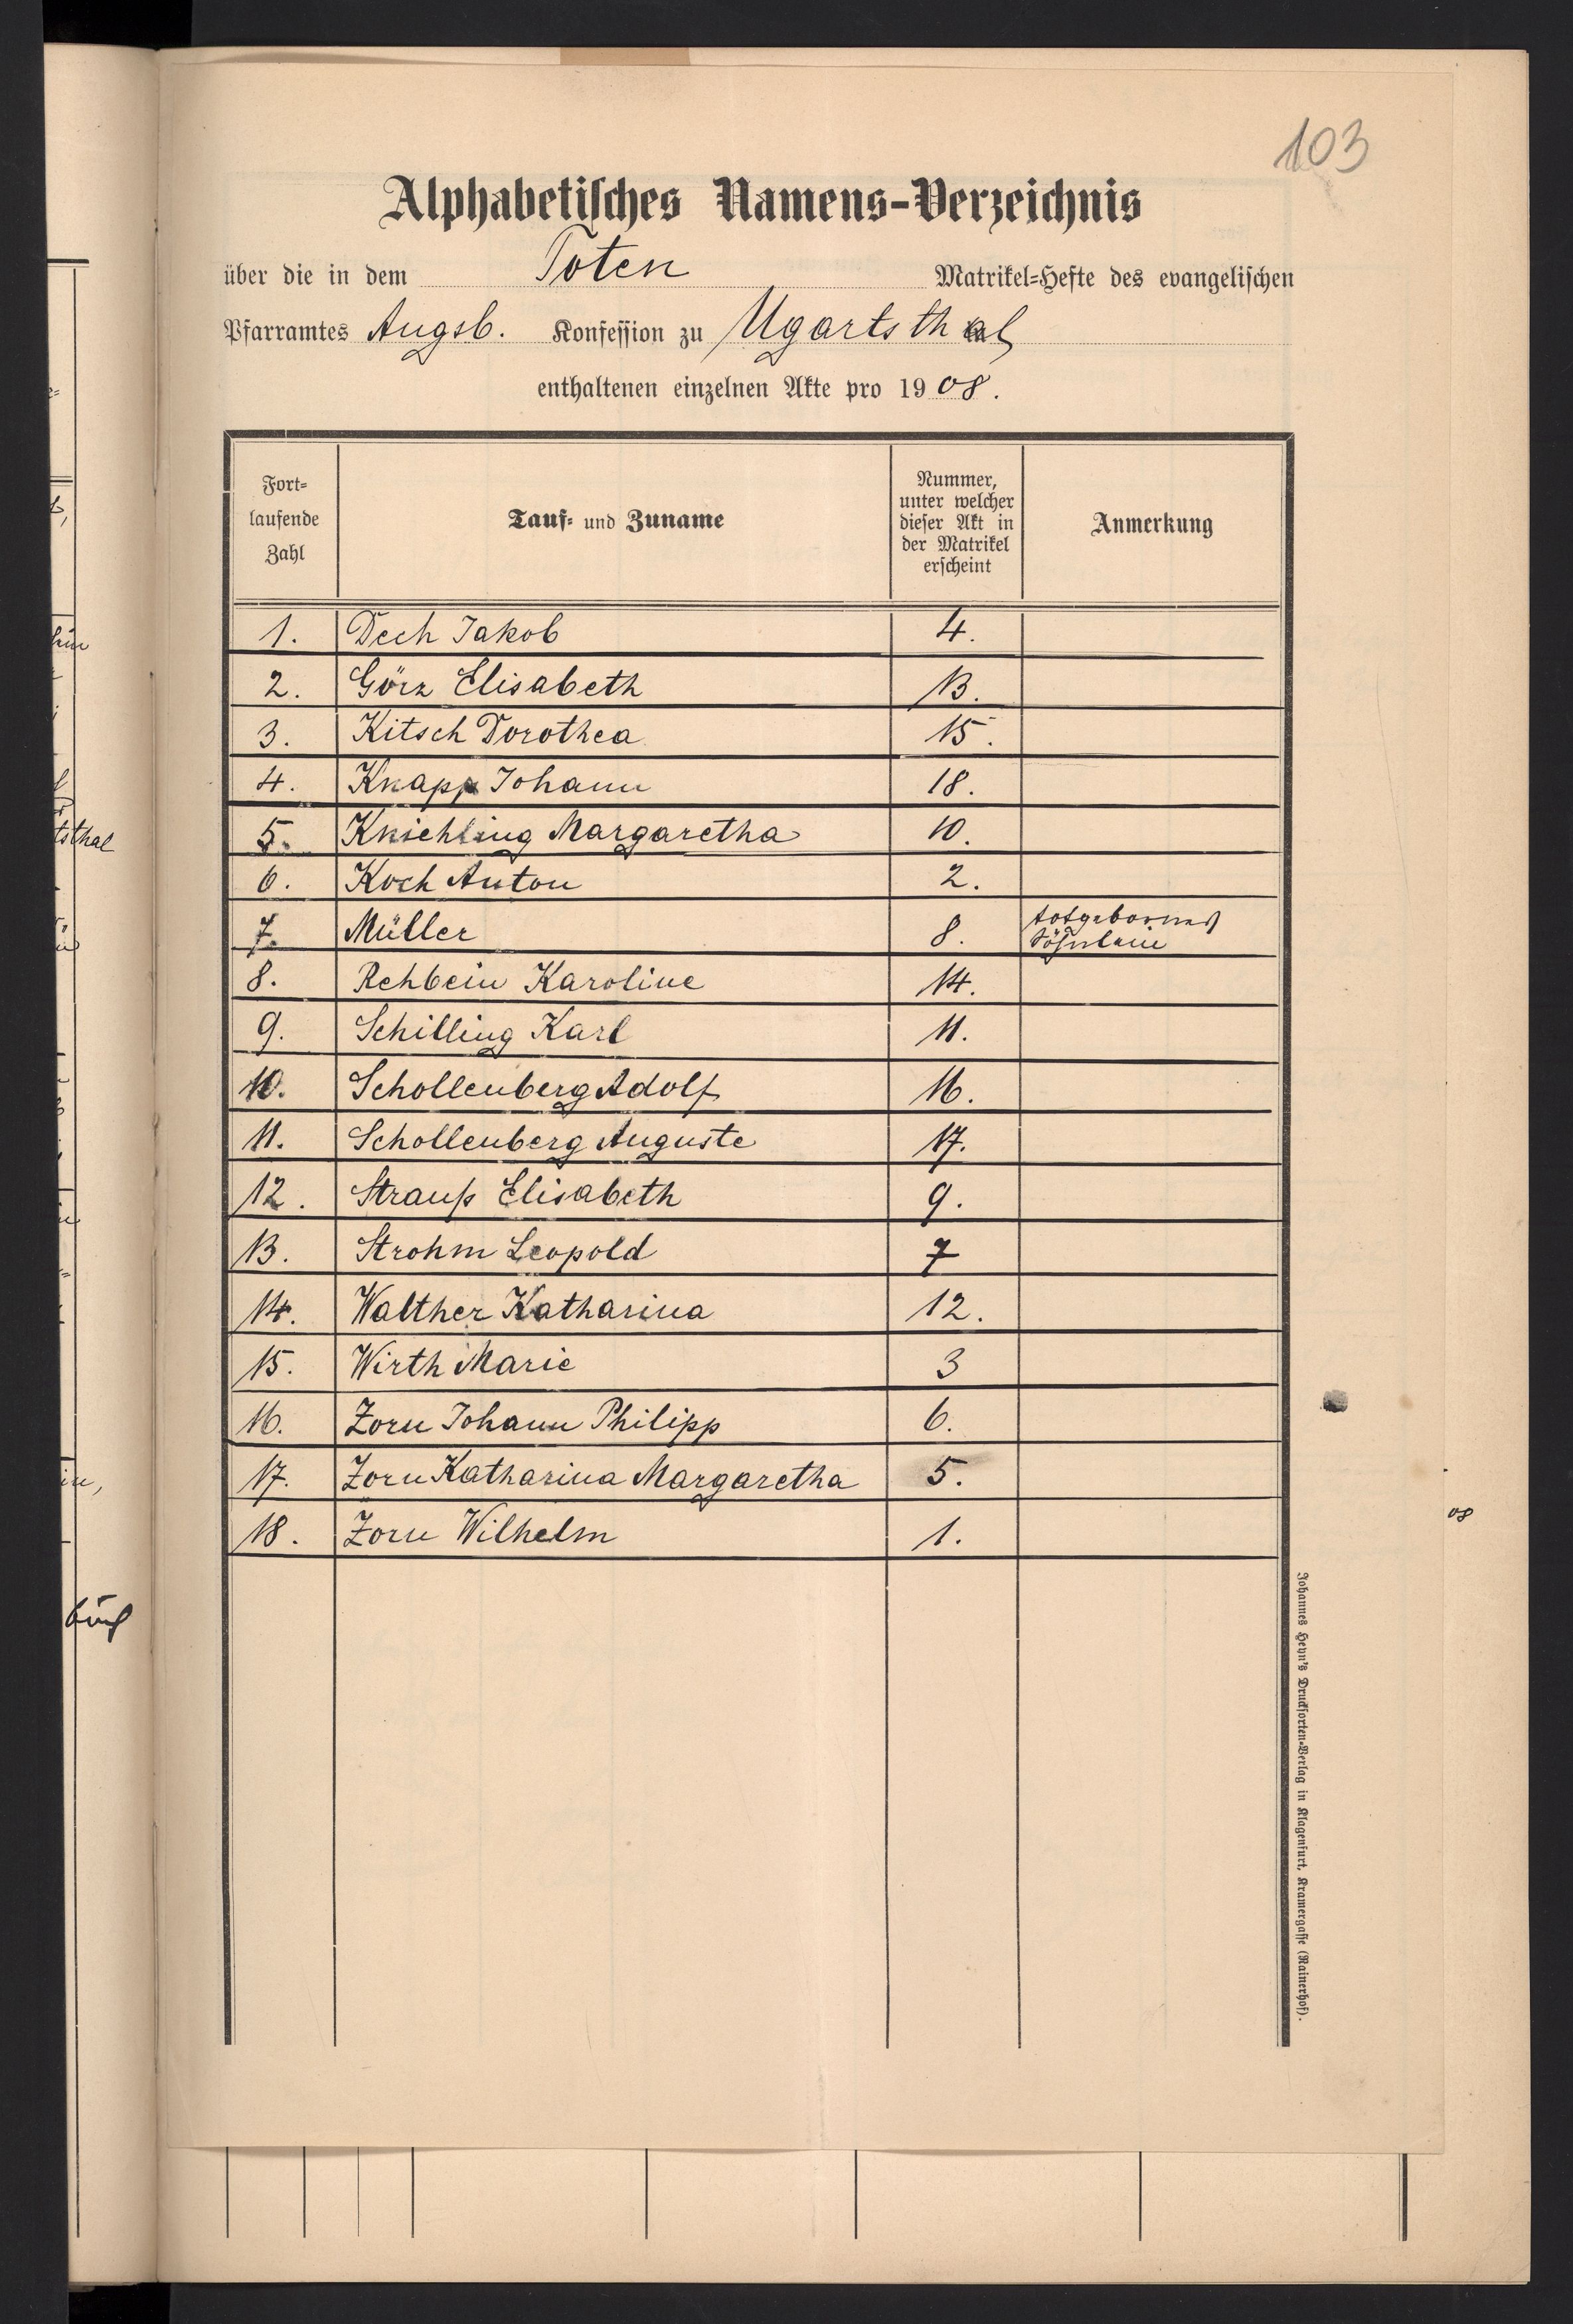 103
Alphabetisches Namens-Verzeichnis
über die in dem Toten Matrikel-Hefte des evangelischen
Pfarramtes Augsb. Konfession zu Ugartsthal
enthaltenen einzelnen Akte pro 1908.
Fort-
laufende
Zahl
Tauf- und Zuname
Nummer,
unter welcher
dieser Akt in
der Matrikel
erscheint
Anmerkung
1. Dech Jakob 4.
2. Görz Elisabeth 13.
3. Kitsch Dorothea 15.
4. Knapp Johann 18.
5. Kniehling Margaretha 10.
6. Koch Anton 2.
7. Müller 8. totgebornes
Söhnlein
8. Rehbein Karoline 14.
9. Schilling Karl 11.
10. Schollenberg Adolf 16.
11. Schollenberg Auguste 17.
12. Strauß Elisabeth 9.
13. Strohm Leopold 7
14. Walther Katharina 12.
15. Wirth Marie 3
16. Zorn Johann Philipp 6.
17. Zorn Katharina Margaretha 5.
18. Zorn Wilhelm 1.
Johannes Heyn's Drucksorten-Verlag in Klagenfurt, Kramergasse (Rainerhof).
08